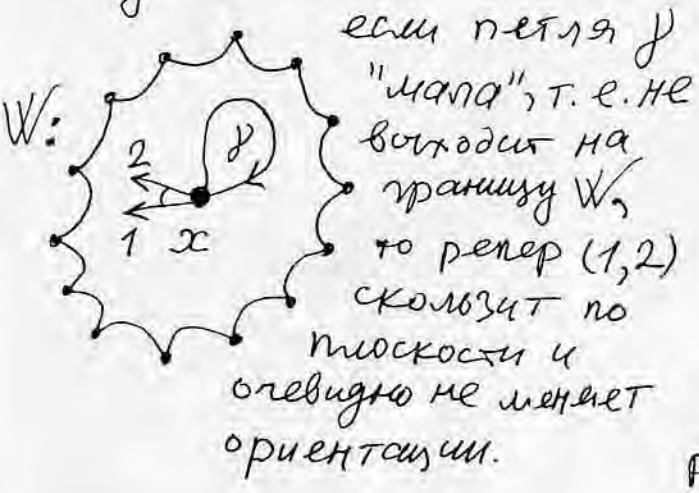 если петля γ
"мала", т. е. не
выходит на
границу W,
то репер (1,2)
скользит по
плоскости и
очевидно не меняет
ориентации.
W:
2
γ
1 x